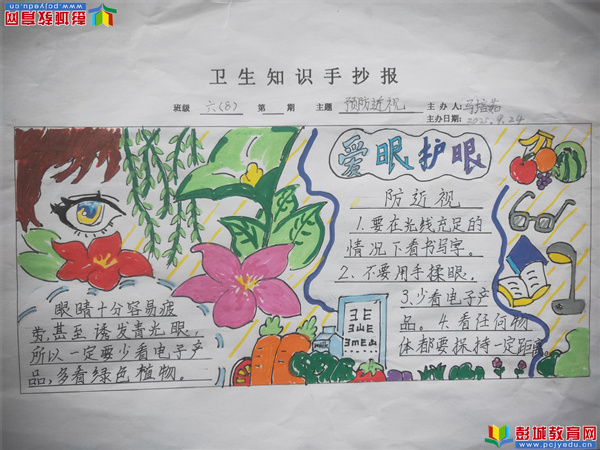 彭城教育网
www.pcjyedu.cn
彭城教育网
www.pcjyedu.cn
卫生知识手抄报
班级 六(8) 第 期 主题 预防近视 主办人:
主办日期: 2025.9.24
爱眼护眼
防近视
1.要在光线充足的
情况下看书写字。
2、不要用手揉眼。
3.少看电子产
品。4.看任何物
体都要保持一定距离。
眼睛十分容易疲
劳,甚至诱发青光眼,
所以一定要少看电子产
品,多看绿色植物。
彭城教育网
www.pcjyedu.cn
彭城教育网
www.pcjyedu.cn